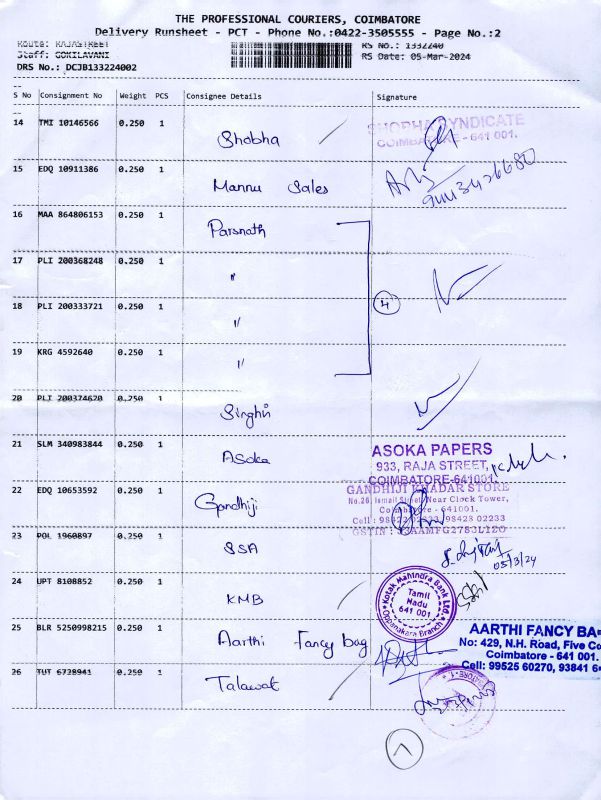 THE PROFESSIONAL COURIERS, COIMBATORE
Delivery Runsheet - PCT - Phone No.:0422-3505555 - Page No.:2
Route: RAJASTREET
RS No.: 1332240
Staff: GOKILAVANI
RS Date: 05-Mar-2024
DRS No.: DCJB133224002
S No Consignment No Weight PCS Consignee Details Signature
14 TMI 10146566 0.250 1 Shobha
SHOBHA SYNDICATE
COIMBATORE - 641 001.
15 EDQ 10911386 0.250 1 Mannu Sales
16 MAA 864806153 0.250 1 Parsnath
17 PLI 200368248 0.250 1 "
18 PLI 200333721 0.250 1 "
4
19 KRG 4592640 0.250 1 "
20 PLI 200374620 0.250 1 Singhvi
21 SLM 340983844 0.250 1 Asoka
ASOKA PAPERS
933, RAJA STREET,
COIMBATORE-641001.
22 EDQ 10653592 0.250 1 Gandhiji
GANDHIJI KHADAR STORE
No.26, Ismail Street, Near Clock Tower,
Coimbatore - 641001.
98423 02233
23 POL 1960897 0.250 1 SSA
05/3/24
24 UPT 8108852 0.250 1 KMB
Kotak Mahindra Bank Ltd.
Tamil
Nadu
641 001
Oppanakara Branch
25 BLR 5250998215 0.250 1 Aarthi Fancy bag
AARTHI FANCY BA
No: 429, N.H. Road, Five Co
Coimbatore - 641 001.
Cell: 99525 60270, 93841 6
26 TUT 6728941 0.250 1 Talawat